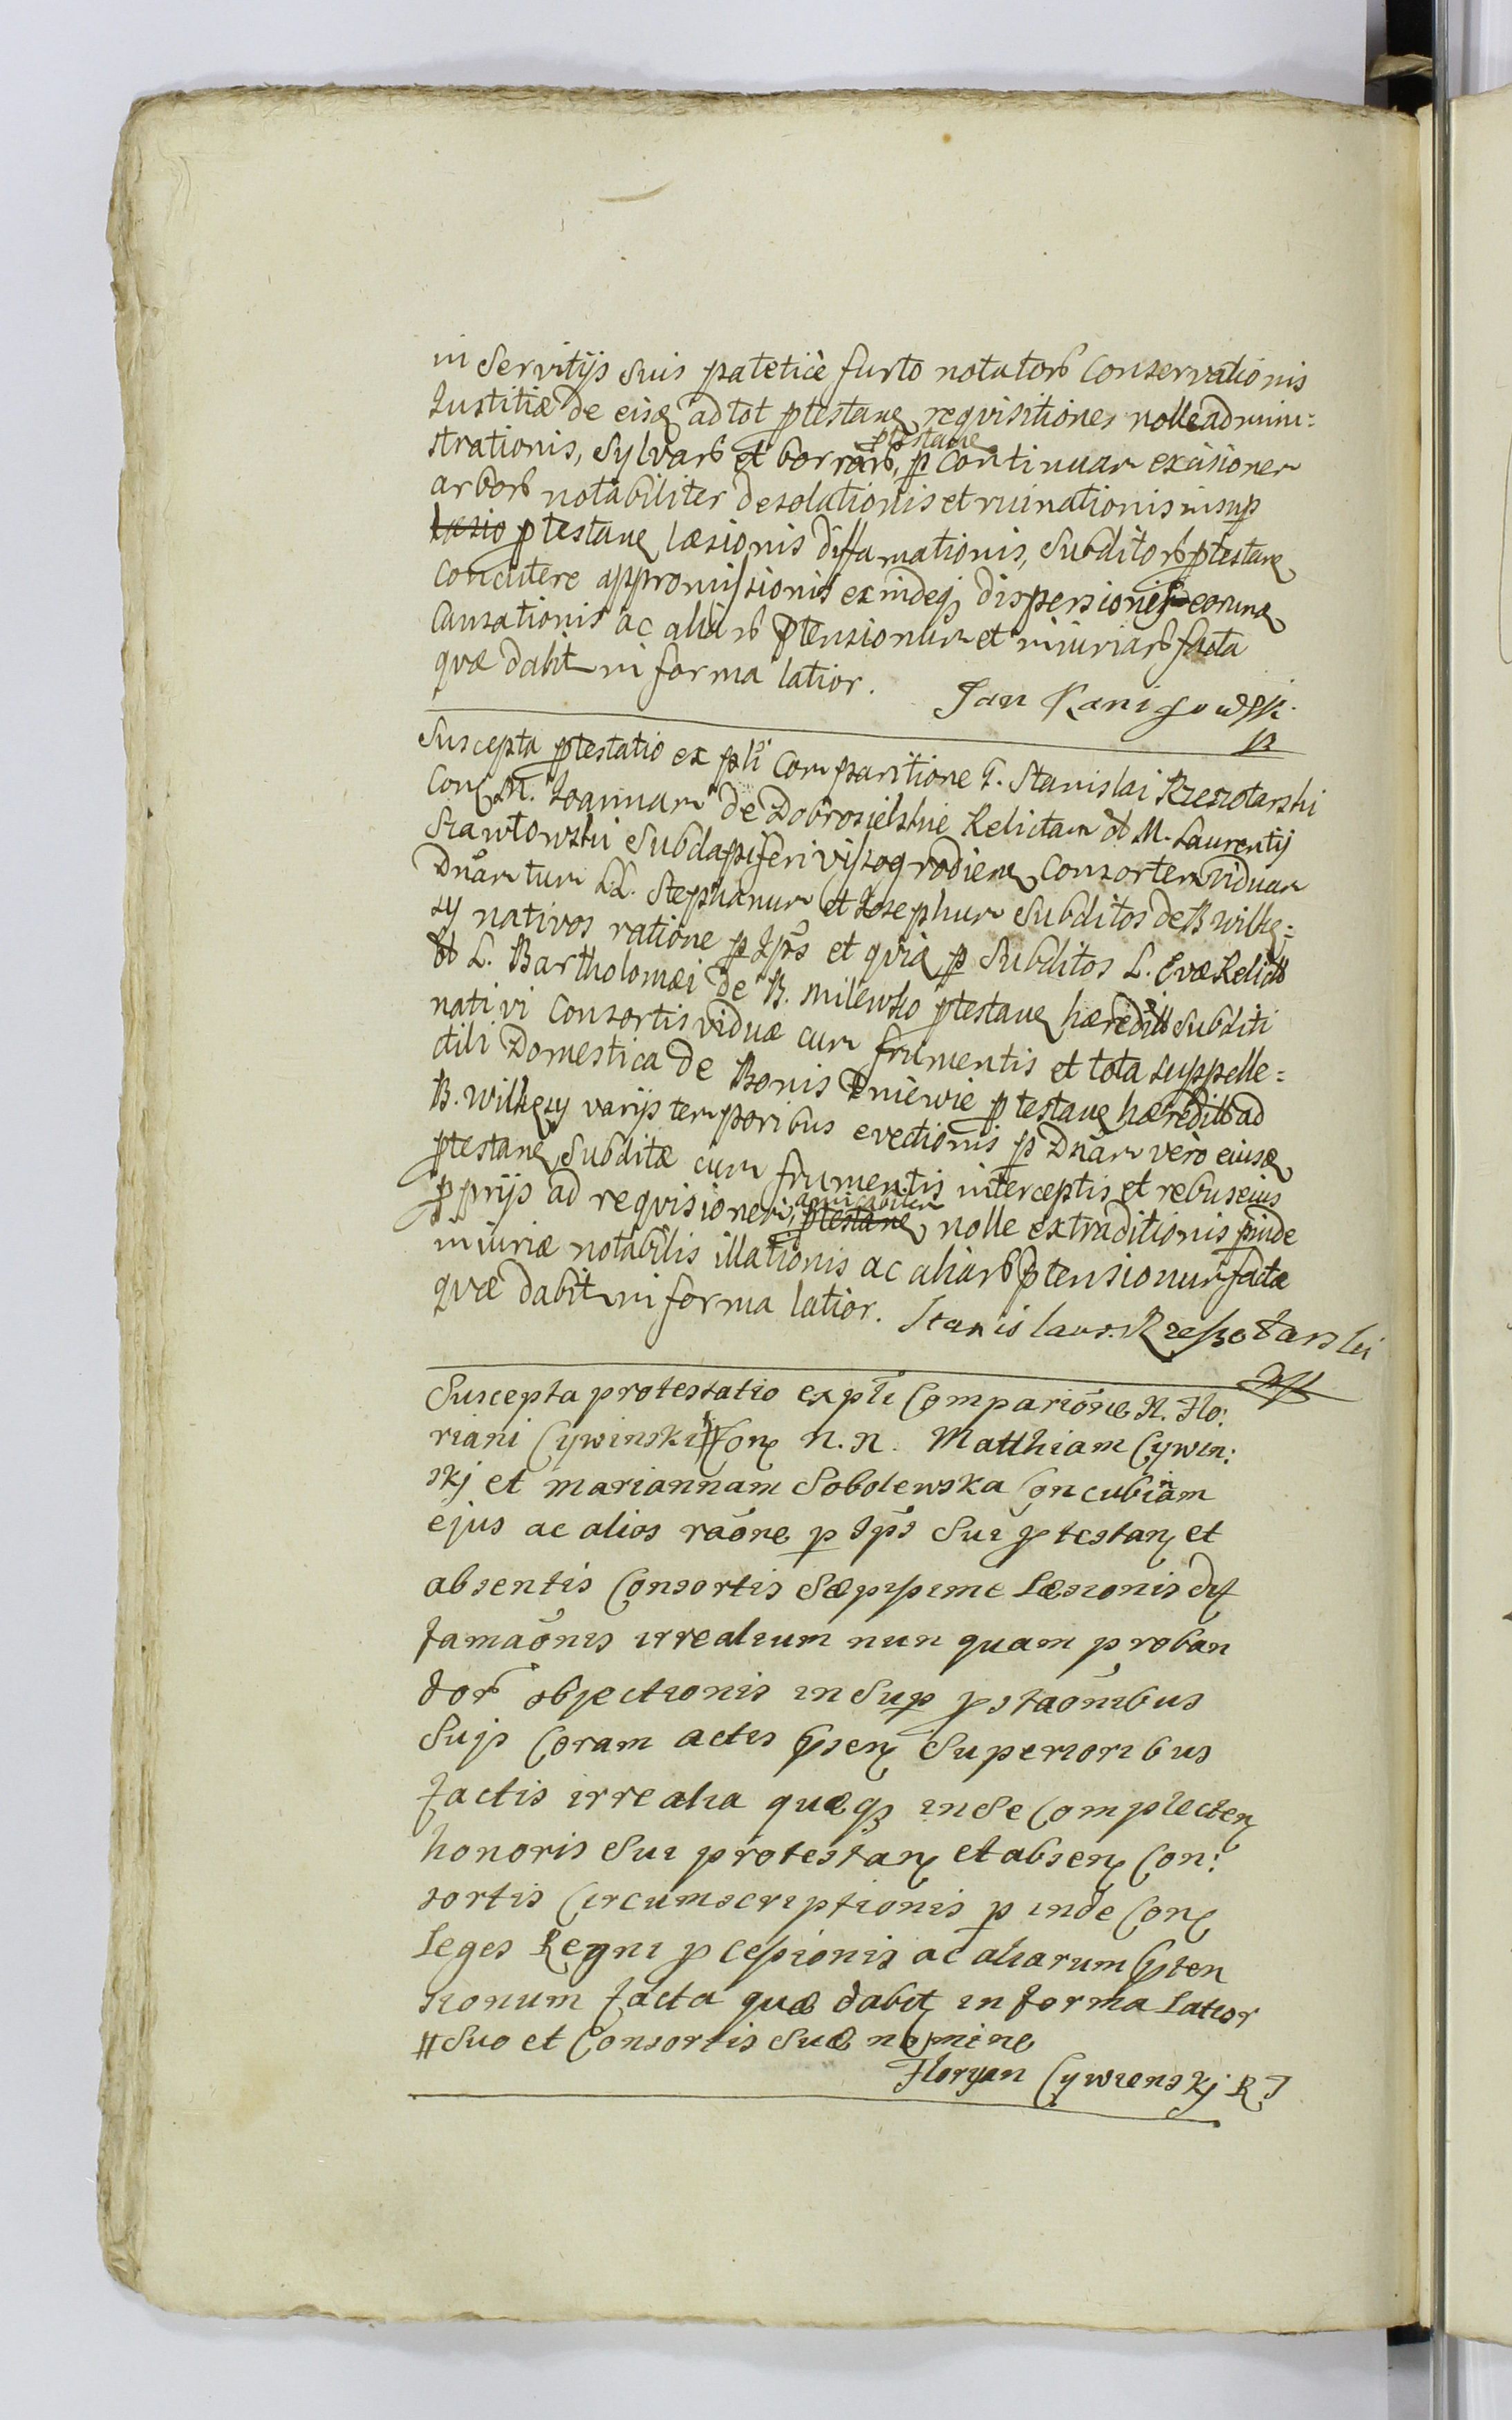 in Servitijs Suis patetice furto notatorb Conservationis
Iustitiæ de eisq ad tot ptestanę requisitiones nolle admini=
ptestanę
strationis, Sylvarb et borrarb, p Continuam excisionem
arborb notabiliter desolationis et ruinationis insup
læsio ptestanę læsionis diffamationis, Subditorb ptestanę
concutere appromissionis exindeq dispersionis eorunq
Causationis ac aliarb ptensionum et iniuriarb facta
quæ dabit in forma latior.
Jan Kanigowski
Suscepta ptestatio ex pli Comparitione G. Stanislai Rzeszotarski
Conę M. Ioannam de Dobrosielskie Relictam ol M. Laurentij
Szawłowski Subdapiferi Vissogrodienę Consortem Viduam
Dnam tum LL. Stephanum et Iosephum Subditos de B. Wilkę=
sy nativos ratione p Ips et quia p Subditos L. Evæ Relictæ
ol L. Bartholomæi de B. Milewko ptestanę hæredit Subditi
nativi Consortis viduæ cum frumentis et tota suppelle=
ctili Domestica de Bonis Dniewie ptestanę hæredit ad
B. Wilkęsy varijs temporibus evectionis p Dnam vero eiusq
ptestanę Subditæ cum frumentis interceptis et rebus eius
amicabiliter
pprijs ad requisitionem, ptestanę nolle extraditionis pinde
iniuriæ notabilis illationis ac aliarb ptensionum facta
quæ dabit in forma latior.
Stanislaus Rzeszotarski
Suscepta protestatio ex pli Comparione N. Flo:
riani Cywinski # Conę N. N. Matthiam Cywin:
skj et mariannam Sobolewska Concubinam
ejus ac alios raone p Ips Sui ptestanę et
absentis Consortis Sæpissime Læsionis dif
famaonis irrealium nun quam proban
dor objectionis in Sup pstaonibus
Suis Coram actis psenę Superioribus
factis irrealia quæq in Se Complectenę
honoris Sui protestanę et absenę Con:
sortis Circumscriptionis p inde Conę
Leges Regni pcessionis ac aliarum pten
sionum facta quæ dabit in forma Latior
# Suo et Consortis Suæ nomine
Floryan Cywienskj